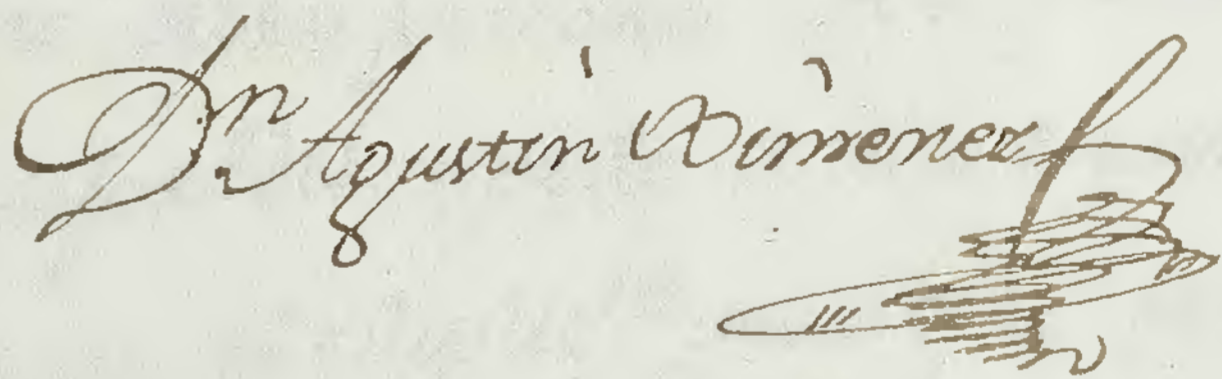 Dn. Agustin Ximenez